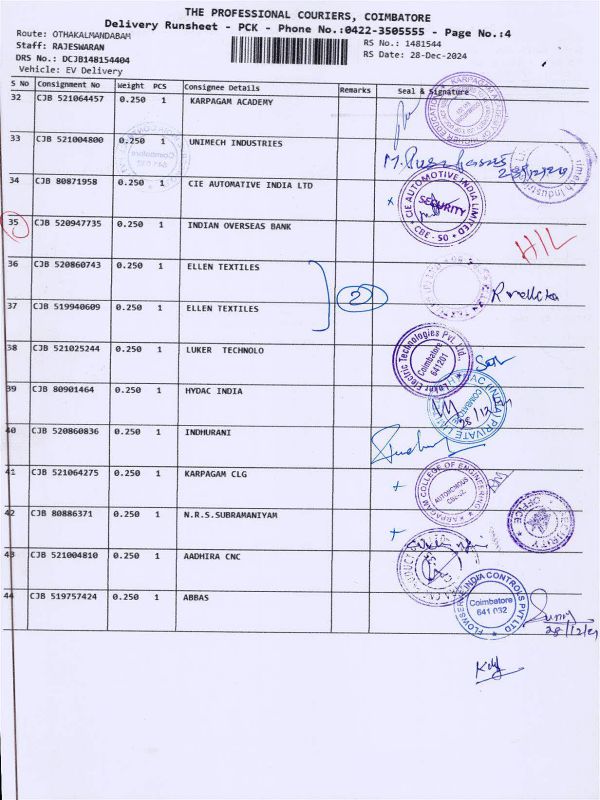 THE PROFESSIONAL COURIERS, COIMBATORE
Delivery Runsheet - PCK - Phone No.:0422-3505555 - Page No.:4
Route: OTHAKALMANDABAM
RS No.: 1481544
Staff: RAJESWARAN
RS Date: 28-Dec-2024
DRS No.: DCJB148154404
Vehicle: EV Delivery
S No Consignment No Weight PCS Consignee Details Remarks Seal & Signature
32 CJB 521064457 0.250 1 KARPAGAM ACADEMY
33 CJB 521004800 0.250 1 UNIMECH INDUSTRIES
28/12/24
34 CJB 80871958 0.250 1 CIE AUTOMATIVE INDIA LTD
CIE AUTOMOTIVE INDIA LIMITED
SECURITY
CBE - 50
35 CJB 520947735 0.250 1 INDIAN OVERSEAS BANK
H/L
36 CJB 520860743 0.250 1 ELLEN TEXTILES
2
37 CJB 519940609 0.250 1 ELLEN TEXTILES
38 CJB 521025244 0.250 1 LUKER TECHNOLO
Luker Electric Technologies Pvt. Ltd.,
Coimbatore
641201
39 CJB 80901464 0.250 1 HYDAC INDIA
28/12/
40 CJB 520860836 0.250 1 INDHURANI
41 CJB 521064275 0.250 1 KARPAGAM CLG
KARPAGAM COLLEGE OF ENGINEERING
AUTONOMOUS
42 CJB 80886371 0.250 1 N.R.S.SUBRAMANIYAM
SECURITY OFFICE
43 CJB 521004810 0.250 1 AADHIRA CNC
44 CJB 519757424 0.250 1 ABBAS
FLOWSERVE INDIA CONTROLS PVT LTD
Coimbatore
641 032
28/12/24